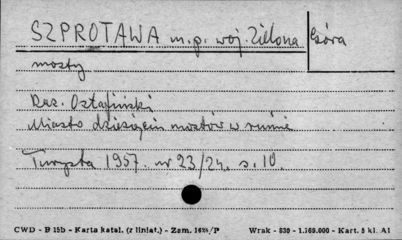 SZPROTAWA m.p. woj. Zielona Góra
mosty
Raz. Ostafiński
Miasto dziesięciu mostów w ruinie
Turysta 1957. nr 23/24. s. 10.
CWD - B 15b - Karta katal. (z liniat.) - Zam. 1624/P
Wrak - 830 - 1.169.000 - Kart. 5 kl. A1